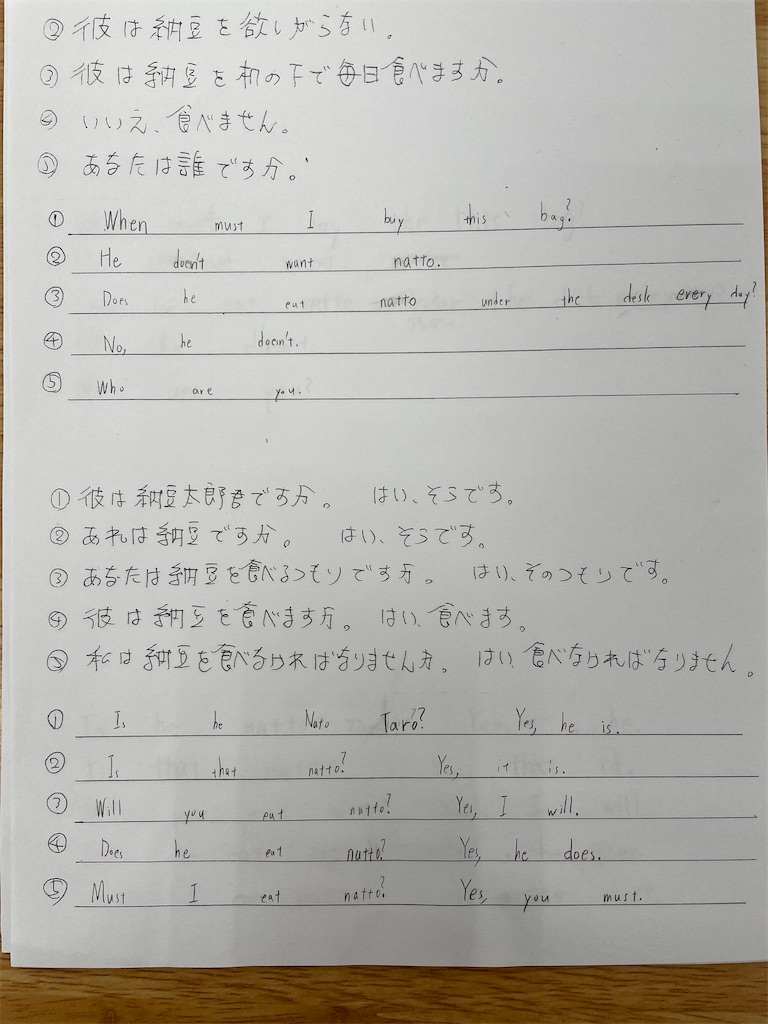 ② 彼は納豆を欲しがらない。
③ 彼は納豆を机の下で毎日食べますか。
④ いいえ、食べません。
⑤ あなたは誰ですか。
① When must I buy this bag?
② He doesn't want natto.
③ Does he eat natto under the desk every day?
④ No, he doesn't.
⑤ Who are you.
① 彼は納豆太郎君ですか。 はい、そうです。
② あれは納豆ですか。 はい、そうです。
③ あなたは納豆を食べるつもりですか。 はい、そのつもりです。
④ 彼は納豆を食べますか。 はい、食べます。
⑤ 私は納豆を食べなければなりませんか。 はい、食べなければなりません。
① Is he Nato Taro?? Yes, he is.
② Is that natto? Yes, it is.
③ Will you eat natto? Yes, I will.
④ Does he eat natto? Yes, he does.
⑤ Must I eat natto? Yes, you must.